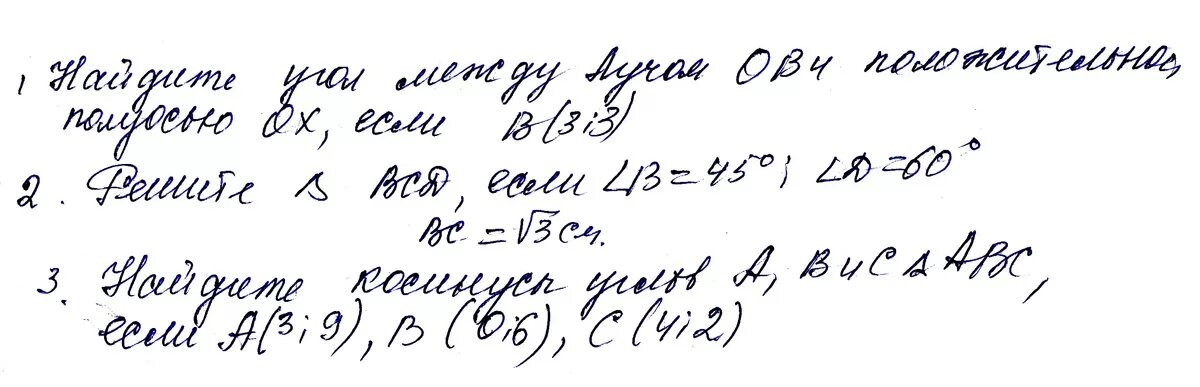 1 Найдите угол между лучом ОВ и положительной
полуосью ОХ, если В(3;3)
2. Решите Δ ВСД, если ∠В=45°; ∠Д=60°
ВС=√3см.
3. Найдите косинусы углов А, В и С Δ АВС,
если А(3;9), В (0;6), С (4;2)